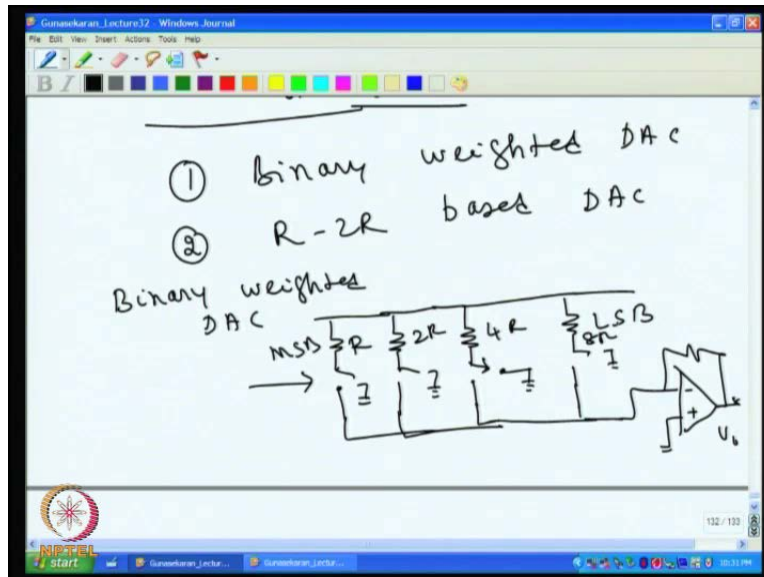 Gunasekaran_Lecture32 - Windows Journal
File Edit View Insert Actions Tools Help
B I
① Binary weighted DAC
② R-2R based DAC
Binary weighted
DAC
MSB R 2R 4R 8R LSB
- +
V₀
NPTEL
132 / 133
start Gunasekaran_Lectur... Gunasekaran_Lectur... 10:31 PM